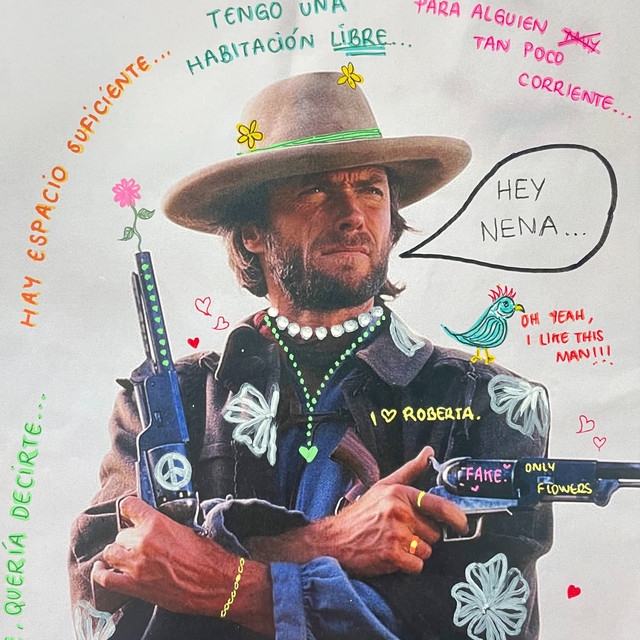 , QUERÍA DECIRTE...
HAY ESPACIO SUFICIENTE...
TENGO UNA
HABITACIÓN LIBRE...
PARA ALGUIEN
TAN POCO
CORRIENTE...
HEY
NENA...
OH YEAH,
I LIKE THIS
MAN!!!
I ♡ ROBERTA.
FAKE.
ONLY
FLOWERS